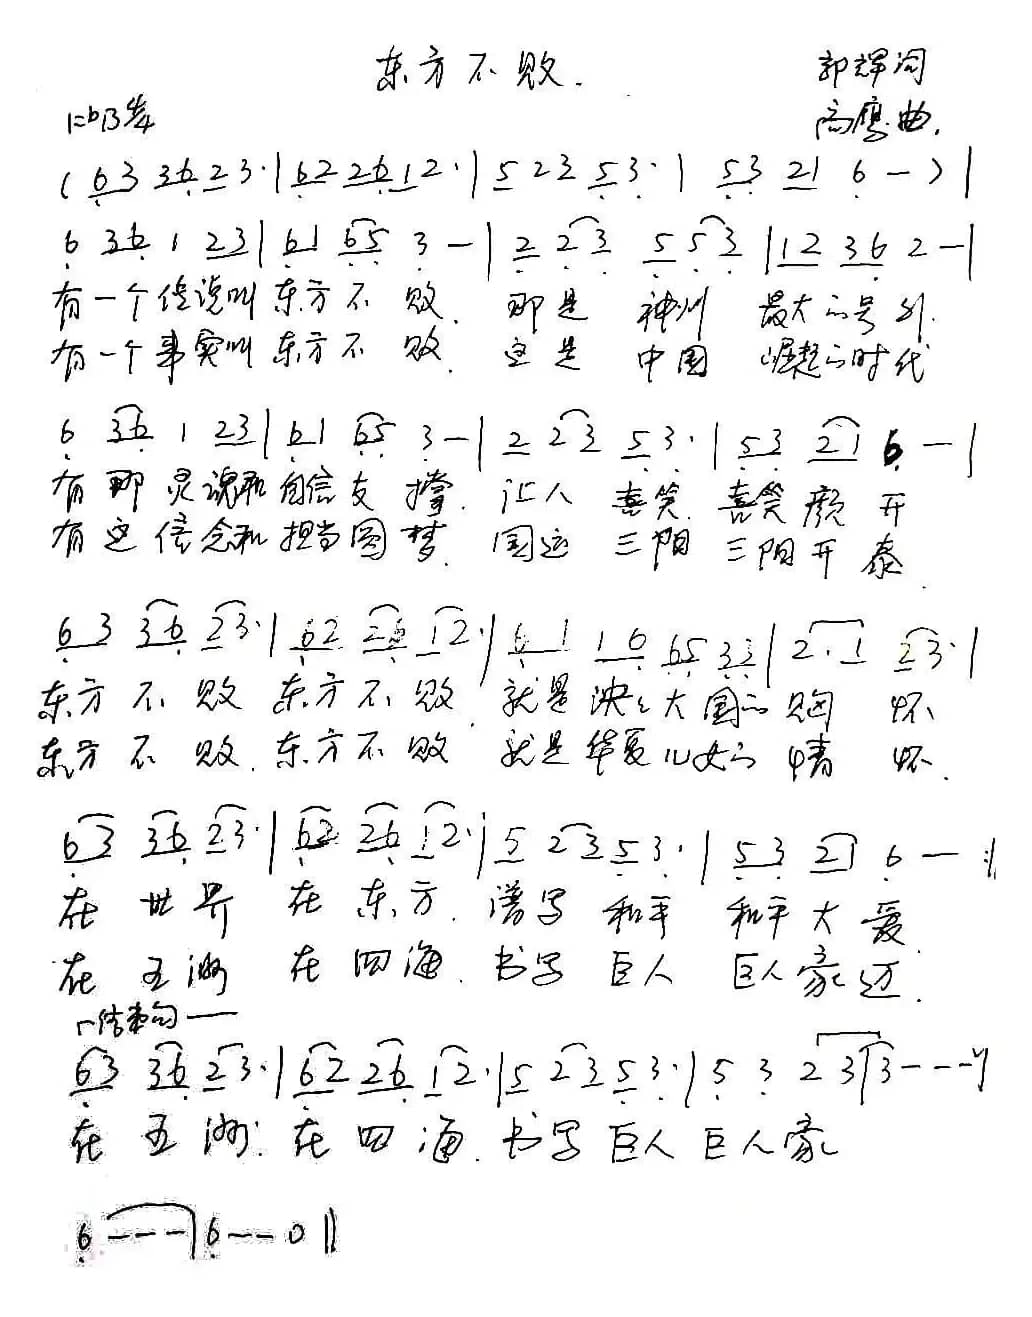 东方不败.
郭辉词
1=bB 4/4
高鹰曲.
( 6 3 3 6 2 3· | 6 2 2 6 1 2· | 5 2 3 5 3· | 5 3 2 1 6 — ) |
6 3 6 1 2 3 | 6 1 6 5 3 — | 2 2 3 5 5 3 | 1 2 3 6 2 — |
有一个传说叫东方不败. 那是 神州 最大的号外.
有一个事实叫东方不败. 这是 中国 崛起的时代
6 3 6 1 2 3 | 6 1 6 5 3 — | 2 2 3 5 3· | 5 3 2 1 6 — |
有那灵魂和自信支撑. 让人 喜笑. 喜笑颜开
有这信念和担当圆梦. 国运 三阳 三阳开泰.
6 3 3 6 2 3· | 6 2 2 6 1 2· | 6 1 1 6 6 5 3 3 | 2· 1 2 3· |
东方不败 东方不败. 就是泱々大国的胸怀
东方不败. 东方不败 就是华夏儿女的情怀.
6 3 3 6 2 3· | 6 2 2 6 1 2· | 5 2 3 5 3· | 5 3 2 1 6 — :‖
在世界 在东方. 谱写 和平 和平大爱
在五洲 在四海. 书写 巨人 巨人豪迈.
┌结束句—
6 3 3 6 2 3· | 6 2 2 6 1 2· | 5 2 3 5 3· | 5 3 2 3 | 3 - - - |
在五洲. 在四海. 书写巨人 巨人豪
6 - - - | 6 - - 0 ‖